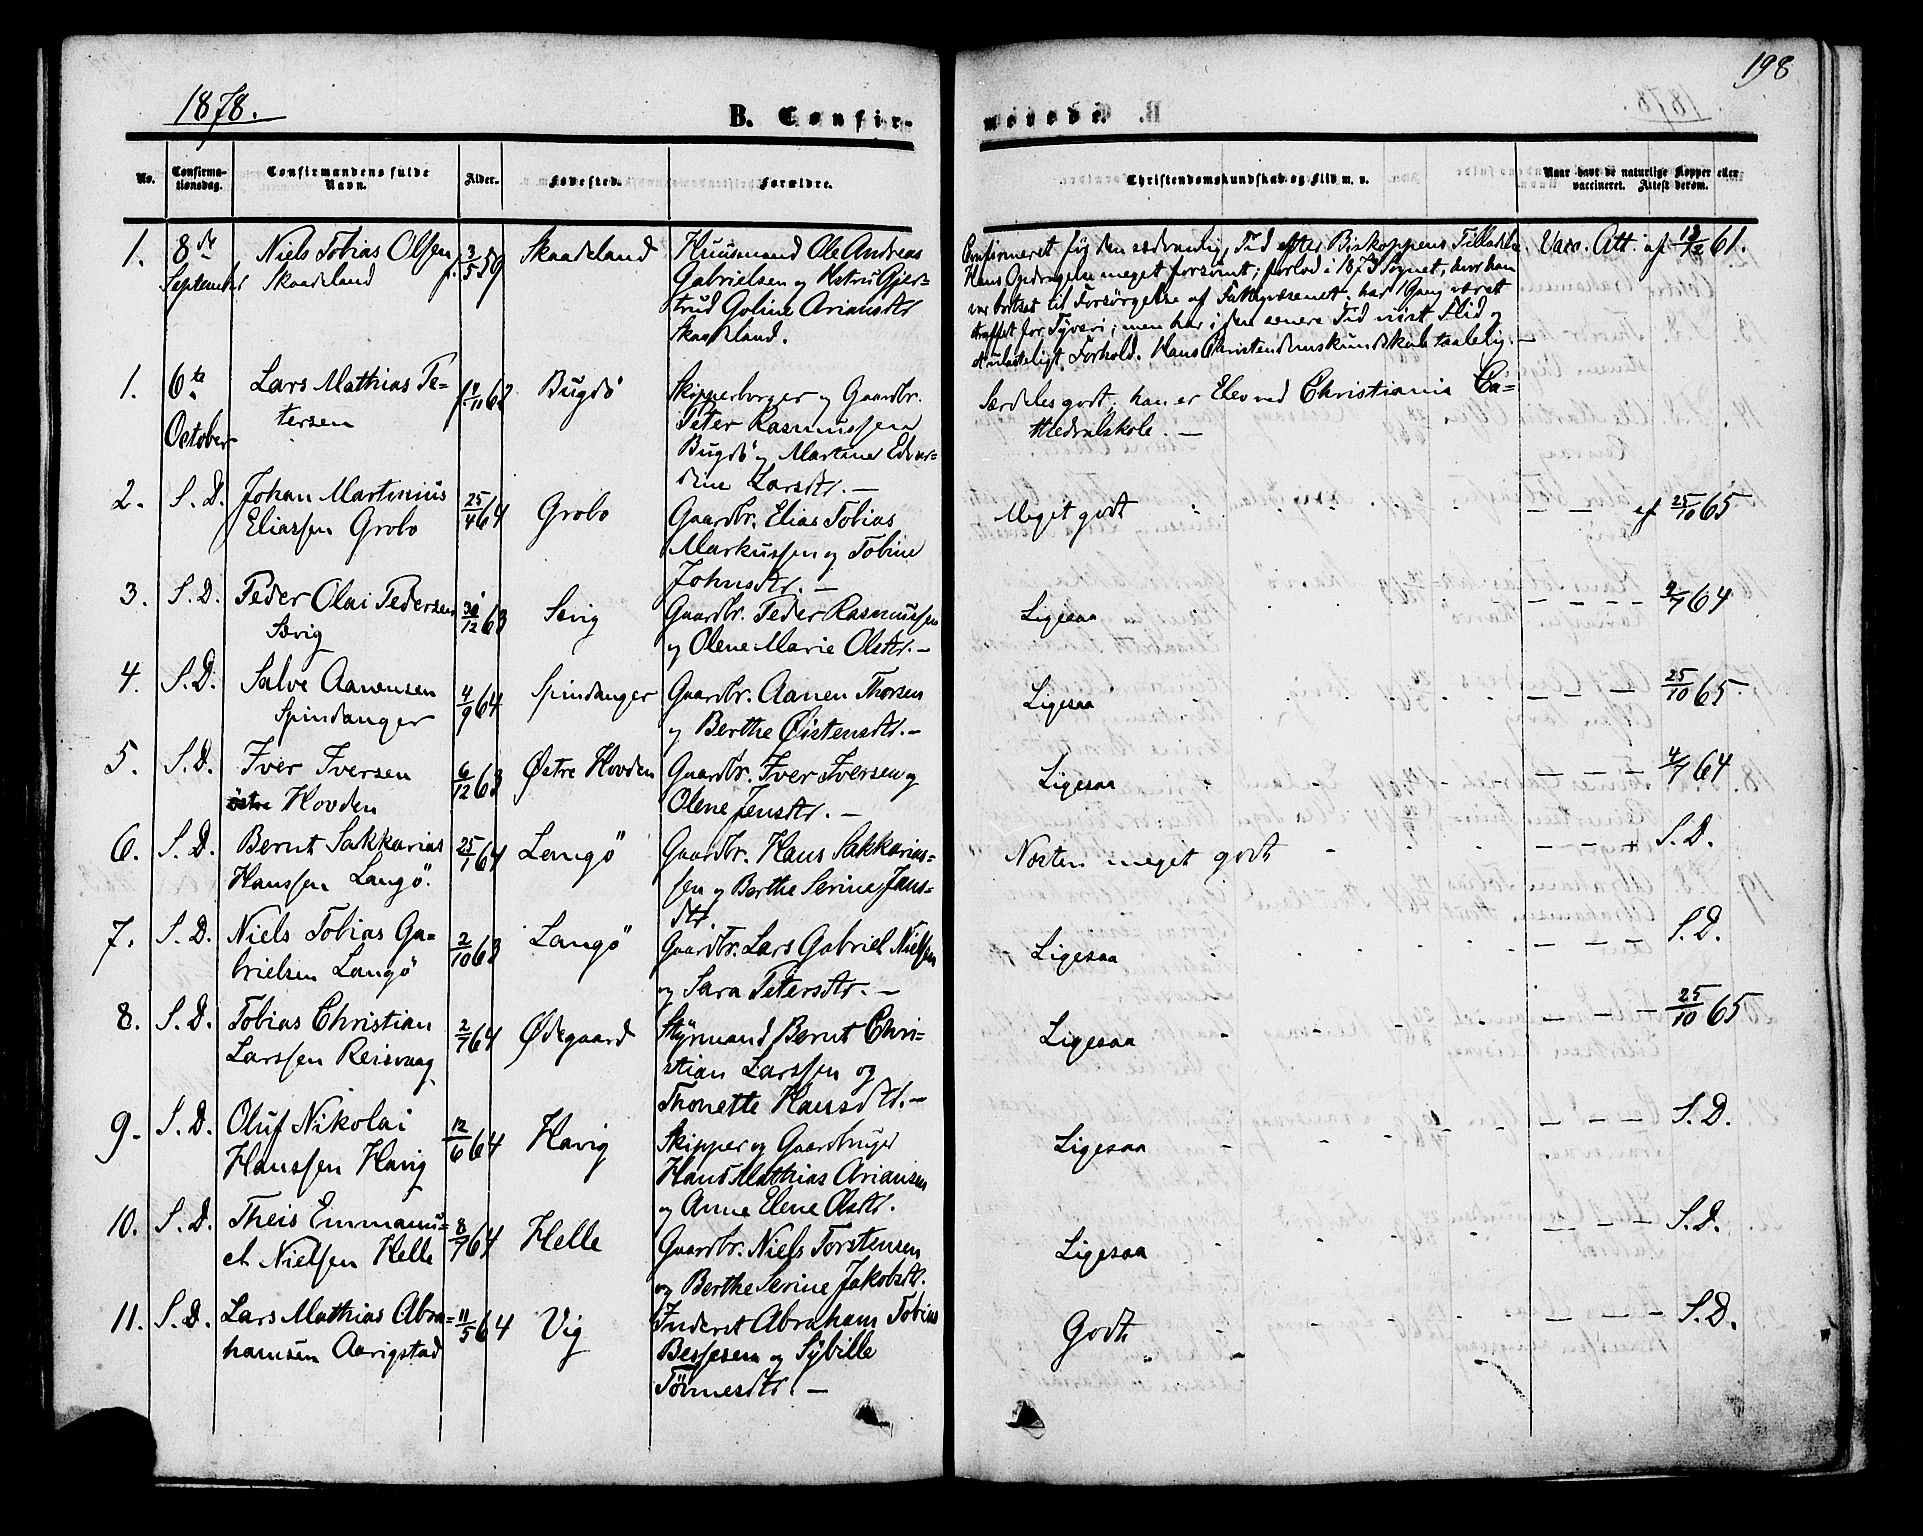 198
1878.
B. Confirmerede.
No.
Confirmationsdag.
Confirmandens fulde Navn.
Alder.
Fødested.
Forældre.
Christendomskundskab og Flid m. v.
Naar havt de naturlige Kopper eller vaccineret. Attest derom.
1.
8de September
Niels Tobias Olssen
Skaadeland
f. 3/5 59
Skaadeland
Huusmand Ole Andreas
Gabrielsen og Hstru Gjer-
trud Goline Ariansdtr
Skaadeland.
Confirmeret før den sædvanlig Tid efter Biskoppens Tilladelse
Hans Opdragelse meget forsømt; forlod i 1873 Sognet, hvor han
var bortsat til Forsørgelse af Fattigvæsenet, har 1 Gang været
straffet for Tyveri; men har i den senere Tid vist Flid og
Forhold. Hans Christendomskundskab taalelig. —
Vacc. Att. af 12/12 61.
1.
6te October
Lars Mathias Pe-
tersen
11/11 63
Bugdö
Skipperborger og Gaardbr.
Peter Rasmussen
Bugdö og Martine Edvar-
dine Larsdtr. —
Særdeles godt; han er Elev ved Christiania Ca-
thedralskole. —
2.
S. D.
Johan Martinius
Eliassen Grobo
25/4 64
Grobo
Gaardbr. Elias Tobias
Markussen og Tobine
Johnsdtr. —
Meget godt
— — af 25/10 65
3.
S. D.
Peder Olai Pedersen
Svig
30/12 63
Svig
Gaardbr. Peder Rasmussen
og Olene Marie Olsdtr. —
Ligesaa
— — — — 4/7 64
4.
S. D.
Salve Aanensen
Spindanger
4/9 64
Spindanger
Gaardbr. Aanen Thorsen
og Berthe Øistensdtr. —
Ligesaa
— — — 25/10 65.
5.
S. D.
Iver Iversen
östre Hovden
6/12 63
Østre Hovden
Gaardbr. Iver Iversen og
Olene Jensdtr. —
Ligesaa
— — — 4/7 64
6.
S. D.
Bernt Sakkarias
Hanssen Langö.
25/1 64
Langö
Gaardbr. Hans Sakkarias-
sen og Berthe Serine Jans-
dtr.
Næsten meget godt
— — — S. D.
7.
S. D.
Niels Tobias Ga-
brielsen Langö
2/10 63
Langö
Gaardbr. Lars Gabriel Nielsen
og Sara Petersdtr. —
Ligesaa
— — — S. D.
8.
S. D.
Tobias Christian
Larssen Reisvaag
2/7 64
Ødegaard
Styrmand Bernt Chri-
stian Larssen og
Thonette Hansdtr. —
Ligesaa
— — — 25/10 65
9.
S. D.
Oluf Nikolai
Hanssen Havig
12/6 64
Havig
Skipper og Gaardbruger
Hans Mathias Ariansen
og Anne Elene Olsdtr.
Ligesaa
— — — S. D.
10.
S. D.
Theis Emmanu-
el Nielsen Helle
8/7 64
Helle
Gaardbr. Niels Torstensen
og Berthe Serine Jakobsdtr.
Ligesaa
— — — — S. D.
11.
S. D.
Lars Mathias Abra-
hamsen Aarigstad
11/5 64
Vig
Inderst Abraham Tobias
Bessesen og Sybille
Tönnesdtr. —
Godt
— — — — S. D.